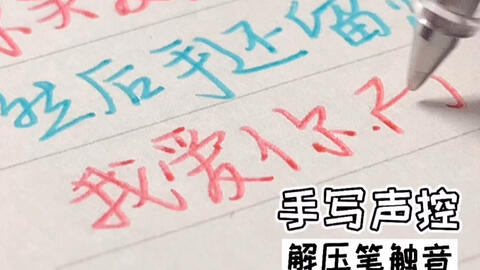 然后手还留
我爱你.不
手写声控
解压笔触音